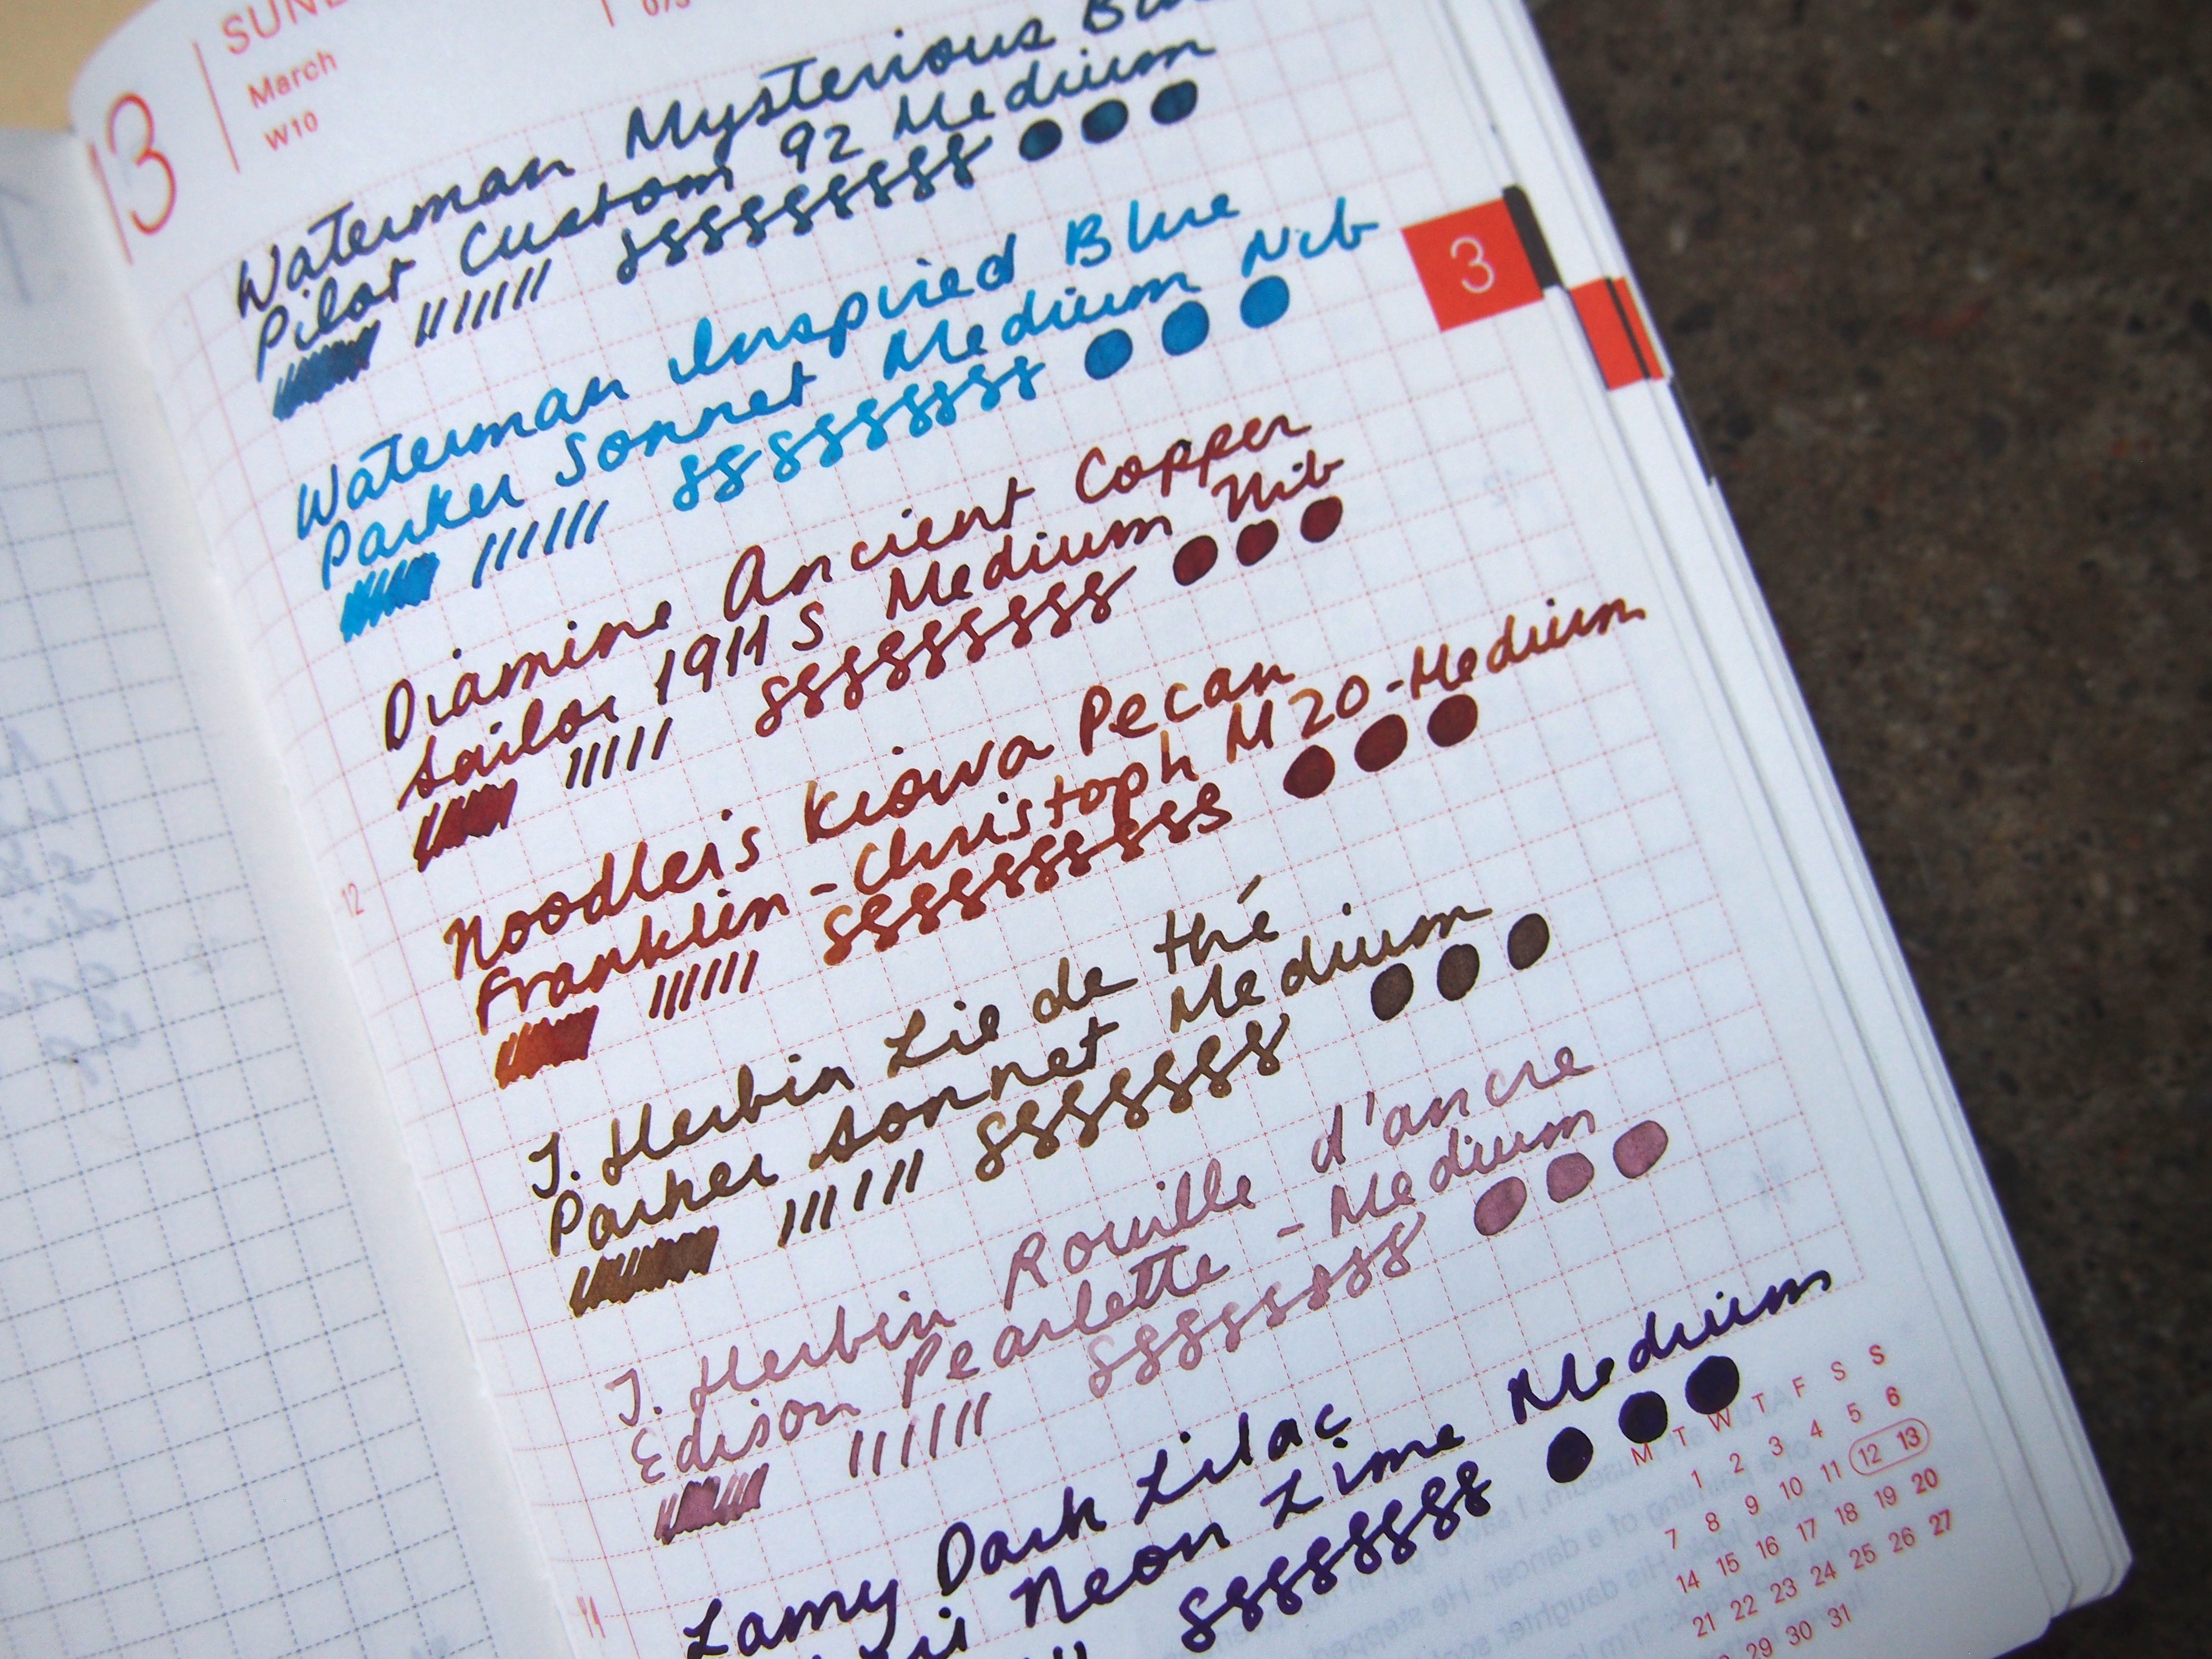 13
March
W10
Waterman Mysterious
Pilot Custom 92 Medium
Waterman Inspired Blue
Parker Sonnet Medium Nib
3
Diamine Ancient Copper
Sailor 1911 S Medium Nib
Noodler's Kiowa Pecan
Franklin-Christoph M20-Medium
12
J. Herbin Lie de thé
Parker Sonnet Medium
J. Herbin Rouille d'ancre
Edison Pearlette - Medium
Lamy Dark Lilac
Neon Lime Medium
M T W T F S S
1 2 3 4 5 6
7 8 9 10 11 12 13
14 15 16 17 18 19 20
21 22 23 24 25 26 27
29 30 31